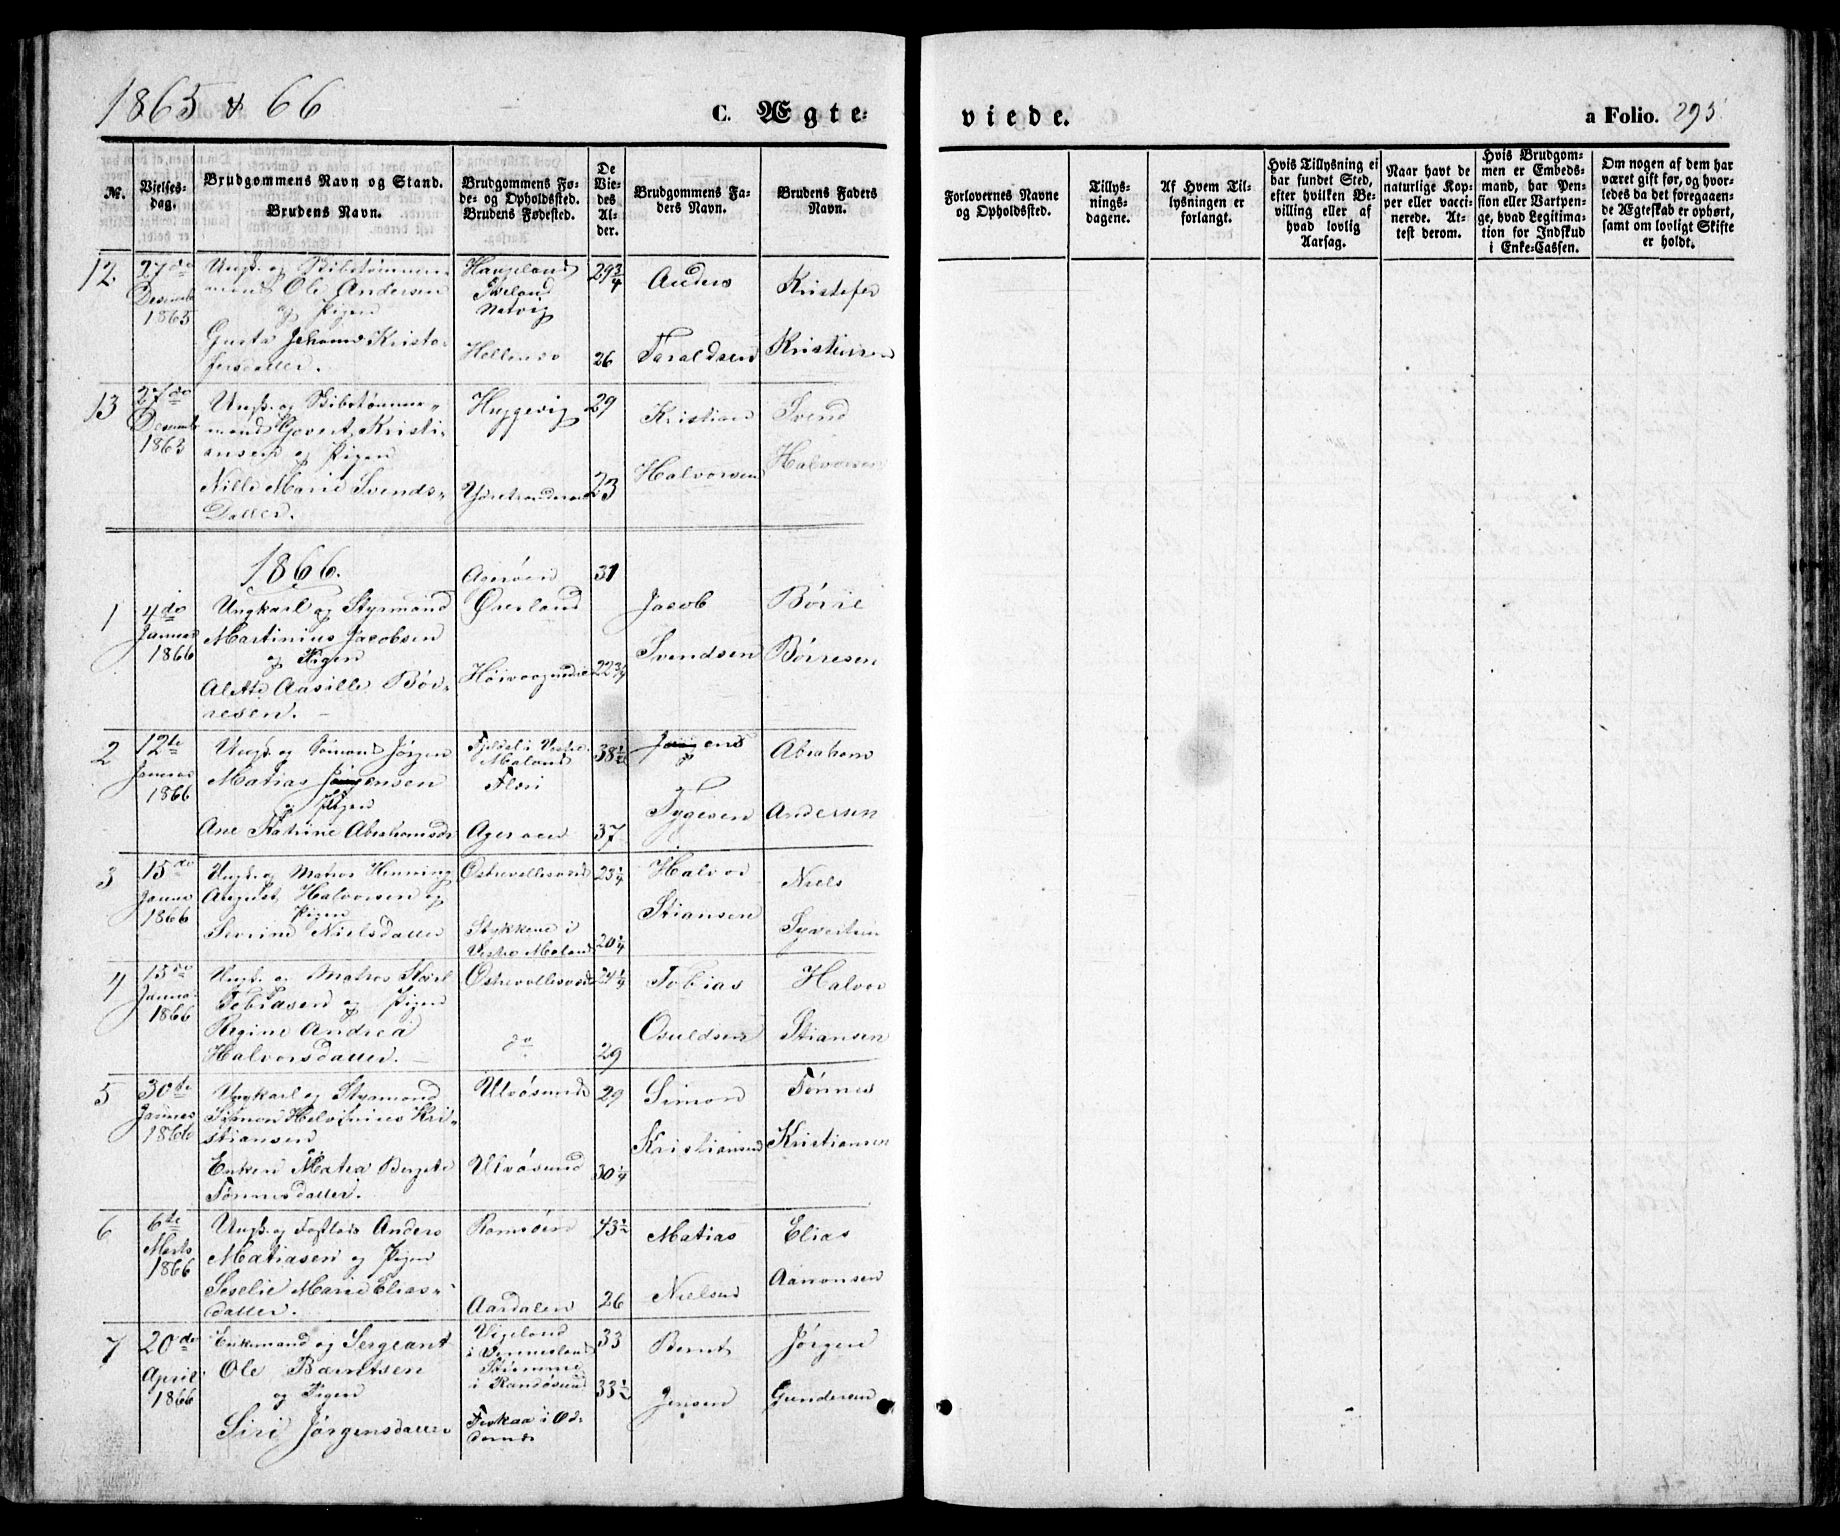 1865 & 66
C. Ægte-
viede.
a Folio. 295
No.
Vielses-
dag.
Brudgommens Navn og Stand.
Brudens Navn.
Brudgommens Fø-
de- og Opholdssted.
Brudens Fødested.
De
Vie-
des
Al-
der.
Brudgommens Fa-
ders Navn.
Brudens Faders
Navn.
Forlovernes Navne
og Opholdssted.
Tillys-
nings-
dagene.
Af Hvem Til-
lysningen er
forlangt.
Hvis Tillysning ei
har fundet Sted,
efter hvilken Be-
villing eller af
hvad lovlig
Aarsag.
Naar havt de
naturlige Kop-
per eller vacci-
nerede. At-
test derom.
Hvis Brudgom-
men er Embeds-
mand, har Pen-
sion eller Vartpen-
ge, hvad Legitima-
tion for Indskud
i Enke-Cassen.
Om nogen af dem har
været gift før, og hvor-
ledes da det foregaaen-
de Ægteskab er ophørt,
samt om lovligt Skifte
er holdt.
12 27de Desemb 1865
Ungk. og Skibstømmer-
mand Ole Andersen
og Pigen
Gusta Johanne Kristo-
fersdatter.
Haugeland
Iveland
Natvig
29 3/4
26
Anders
Taraldsen
Kristofer
Kristensen
13 27de Desemb 1865
Ungk. og Skibstømmer-
mand Govert Kristi-
ansen og Pigen
Nille Marie Svends-
Datter.
Heggevig
29
23
Kristian
Halvorsen
Svend
Halvorsen
1866.
1 4de Januar 1866
Ungkarl og Styrmand
Martinius Jacobsen
og Pigen
Alette Aasille Bør-
resen.
Agerøen
Øverland
31
22 3/4
Jacob
Svendsen
Børre
Børresen
2 12te Januar 1866
Ungk. og Sømand Jørgen
Matias Jørgensen
og Pigen
Ane Katrine Abrahamsdr
Fjeldal i Vestre
Moland
Agerøen
38 1/2
37
Jørgens
Tygesen
Abraham
Andersen
3 15de Januar 1866
Ungk. og Matros Henning
August Halvorsen og
Pigen
Sevrine Nielsdatter
Østrevallesverd
Stykkene i
Vestre Moland
23 1/4
20 1/4
Halvor
Stiansen
Niels
Syvertsen
4 15de Januar 1866
Ungk. og Matros Karl
Tobiasen og Pigen
Regine Andrea
Halvorsdatter.
Østrevallesverd
do
24 1/4
29
Tobias
Osuldsen
Halvor
Stiansen
5 30de Januar 1866
Ungkarl og Styrmand
Simon Helvinius Kri-
stiansen
Enken Matea Bergete
Tønnesdatter.
Ulvøsund
Ulvøsund
29
30 1/4
Simon
Kristiansen
Tønnes
Kristiansen
6 6te Marts 1866
Ungk. og Anders
Matiasen og Pigen
Seselie Marie Elias-
datter.
Ramsøen
Aardalen
43 1/2
26
Matias
Nielsen
Elias
Aanonsen
7 20de April 1866
Enkemand og Sergeant
Ole Barntsen
og Pigen
Siri Jørgensdatter
Vigeland
i Vennesland
Strømme
i Randøsund
Foskaa i Od-
dernes
33
33 1/2
Bernt
Jensen
Jørgen
Gundersen